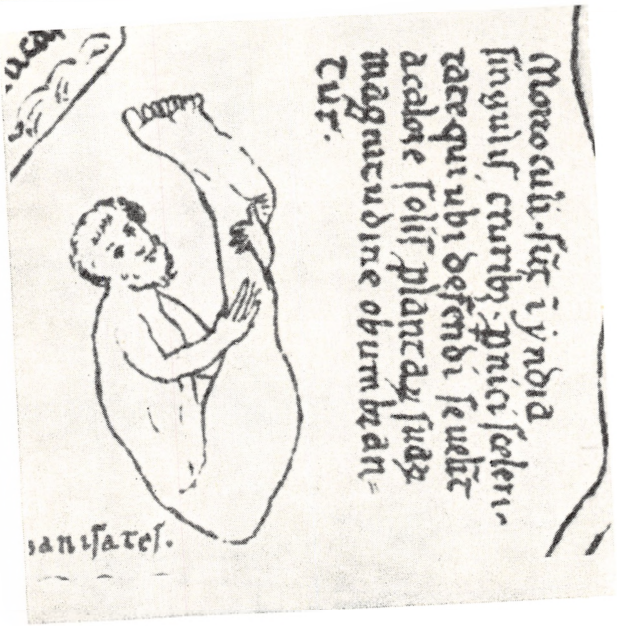 Monosculi sũt ĩ yndia
singulis crurib; pnici sceleri-
tate qui ubi defendi se uelĩt
a calore solis plantaȝ suaȝ
magnitudine obumbran=
tur.